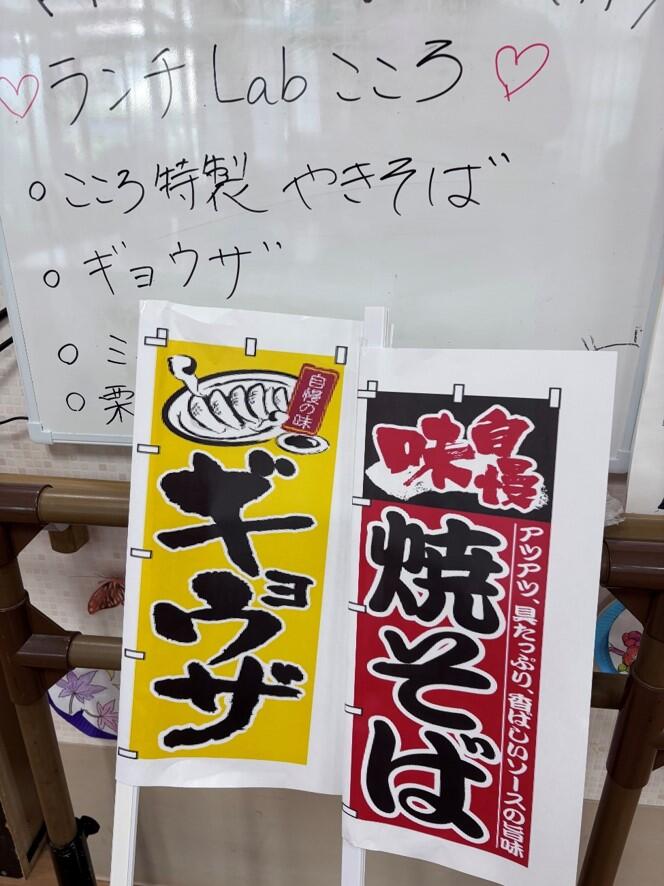 ランチ Lab こころ
○ こころ特製 やきそば
○ ギョウザ
○ ミ
○ 栗
自慢の味
ギョウザ
自慢
味
焼そば
アツアツ、具たっぷり、香ばしいソースの旨味